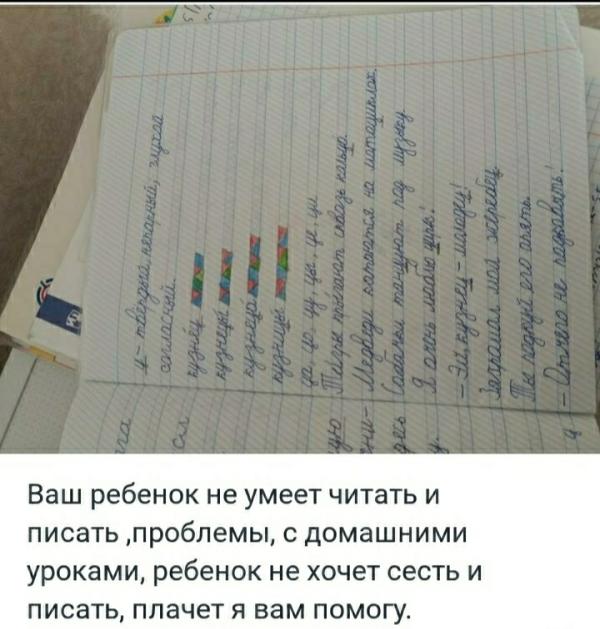 ц - твёрдый, непарный, глухой
согласный.
кузнец
кузнецы
ца, цо, цу, цы, це, ци
Тигры прыгают сквозь кольцо.
Медведи катаются на матациклах.
Сабачки танцуют пад музыку
Я очень люблю цирк!
- Эй, кузнец - молодец!
Захромал мой жеребец.
Ты подкуй его опять.
- Отчего не
Ваш ребенок не умеет читать и
писать ,проблемы, с домашними
уроками, ребенок не хочет сесть и
писать, плачет я вам помогу.